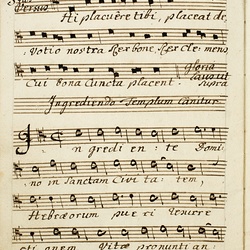 Versus
Hi placuere tibi, placeat de,
votio nostra Rex bone, Rex clemens,
Gloria
Laus ut
Cui bona Cuncta placent. supra
Ingrediendo Templum canitur
In gredi en : te Domi
no in Sanctam Civi ta : tem,
Hebræorum pue ri Resurre
cti onem Vitæ pronunti an :